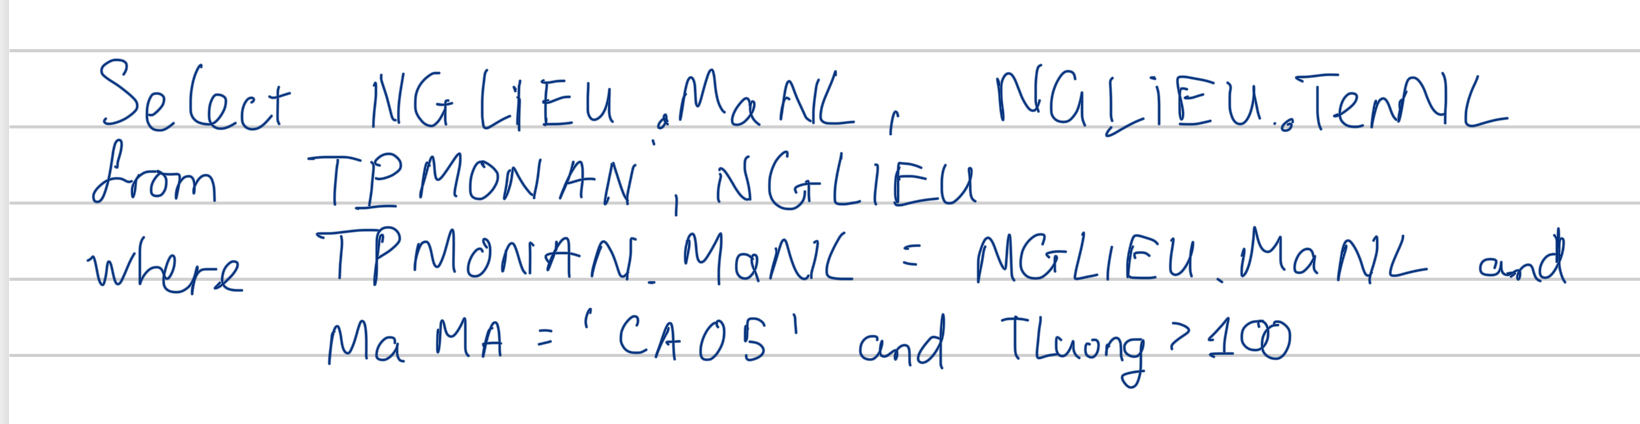 Select NGLIEU.MaNL, NGLIEU.TenNL
from TPMONAN, NGLIEU
where TPMONAN.MaNL = NGLIEU.MaNL and
MaMA = 'CA05' and TLuong > 100